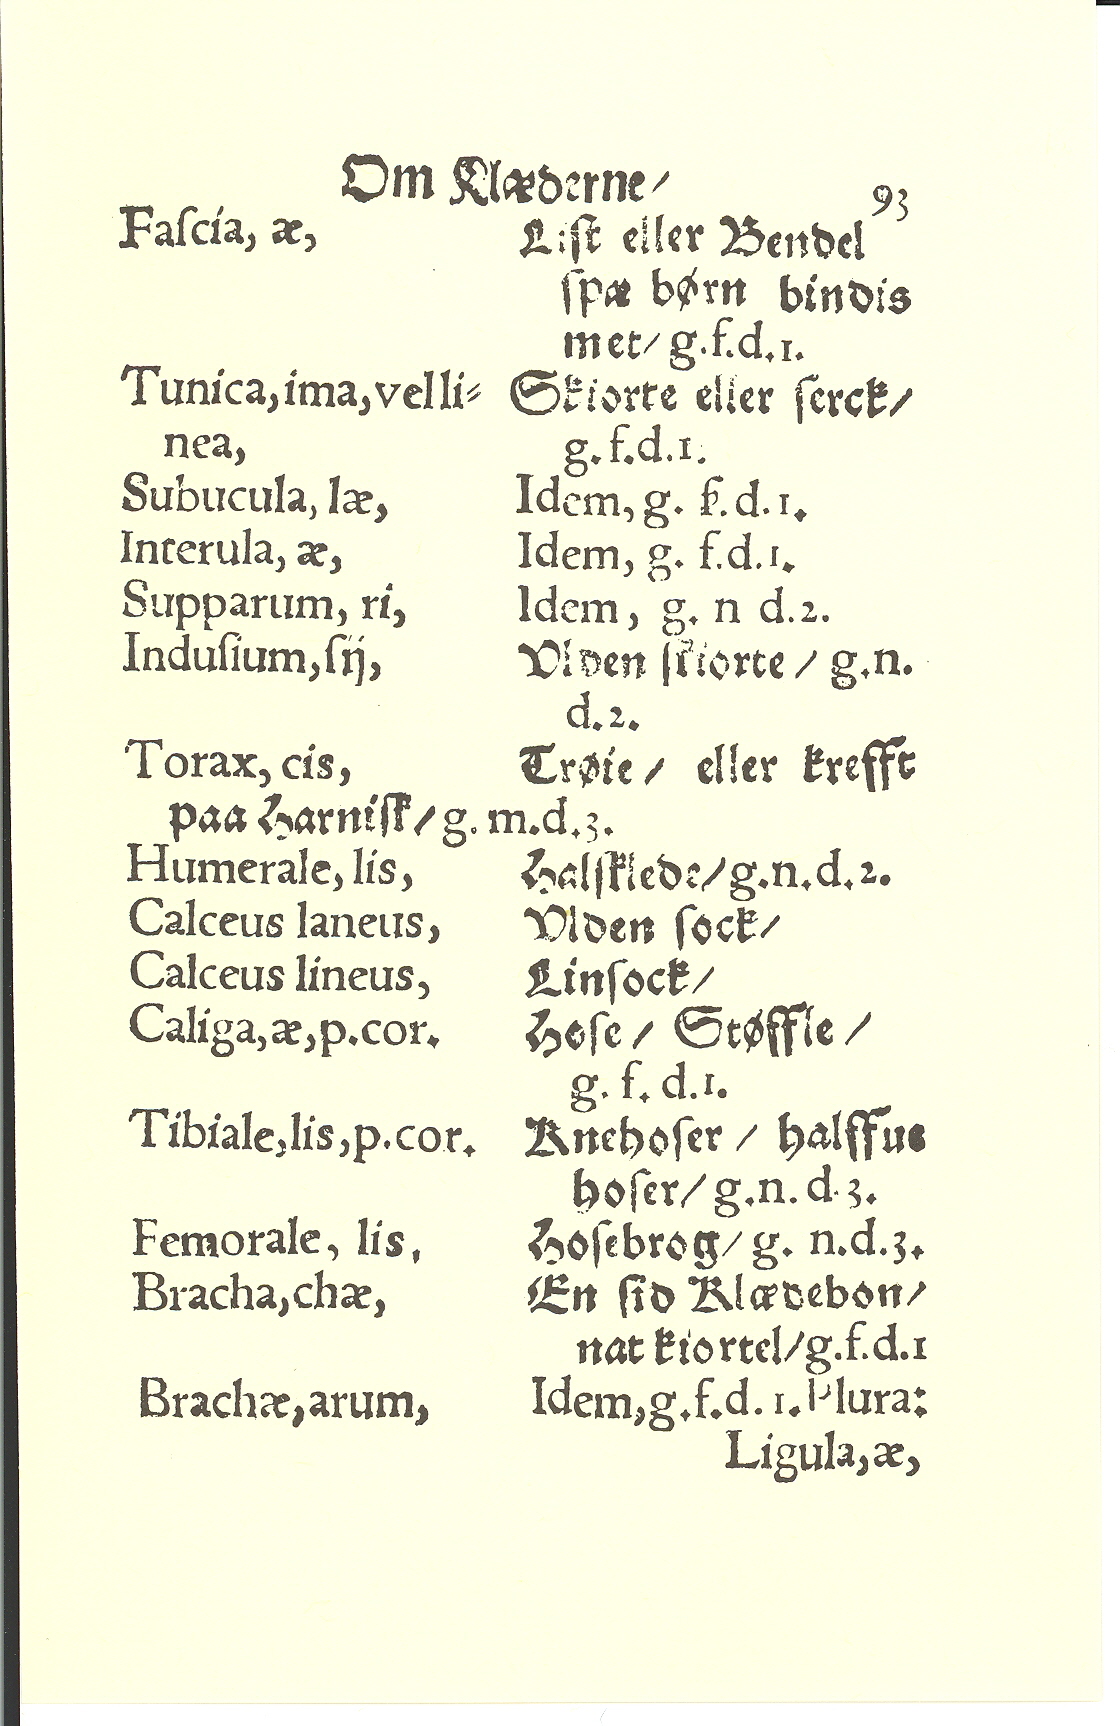 Om Klæderne/
93
Faſcia, æ, Liſt eller Bendel
ſpæ børn bindis
met/ g.f.d.1.
Tunica, ima, vel li⸗ Skiorte eller ſerck/
nea, g. f.d.1.
Subucula, læ, Idem, g. f. d. 1.
Interula, æ, Idem, g. f.d.1.
Supparum, ri, Idem, g. n d.2.
Induſium, ſij, Vlden ſkiorte / g.n.
d.2.
Torax, cis, Trøie / eller krefft
paa Harniſk/ g. m.d.3.
Humerale, lis, Halſklede/ g.n.d.2.
Calceus laneus, Vlden ſock/
Calceus lineus, Linſock/
Caliga, æ, p.cor. Hoſe / Støffle /
g. f. d.1.
Tibiale, lis, p.cor. Knehoſer / halffue
hoſer/ g.n. d.3.
Femorale, lis, Hoſebrog/ g. n.d.3.
Bracha, chæ, En ſid Klædebon/
nat kiortel/g.f.d.1
Brachæ, arum, Idem, g.f.d. 1. Plura:
Ligula, æ,